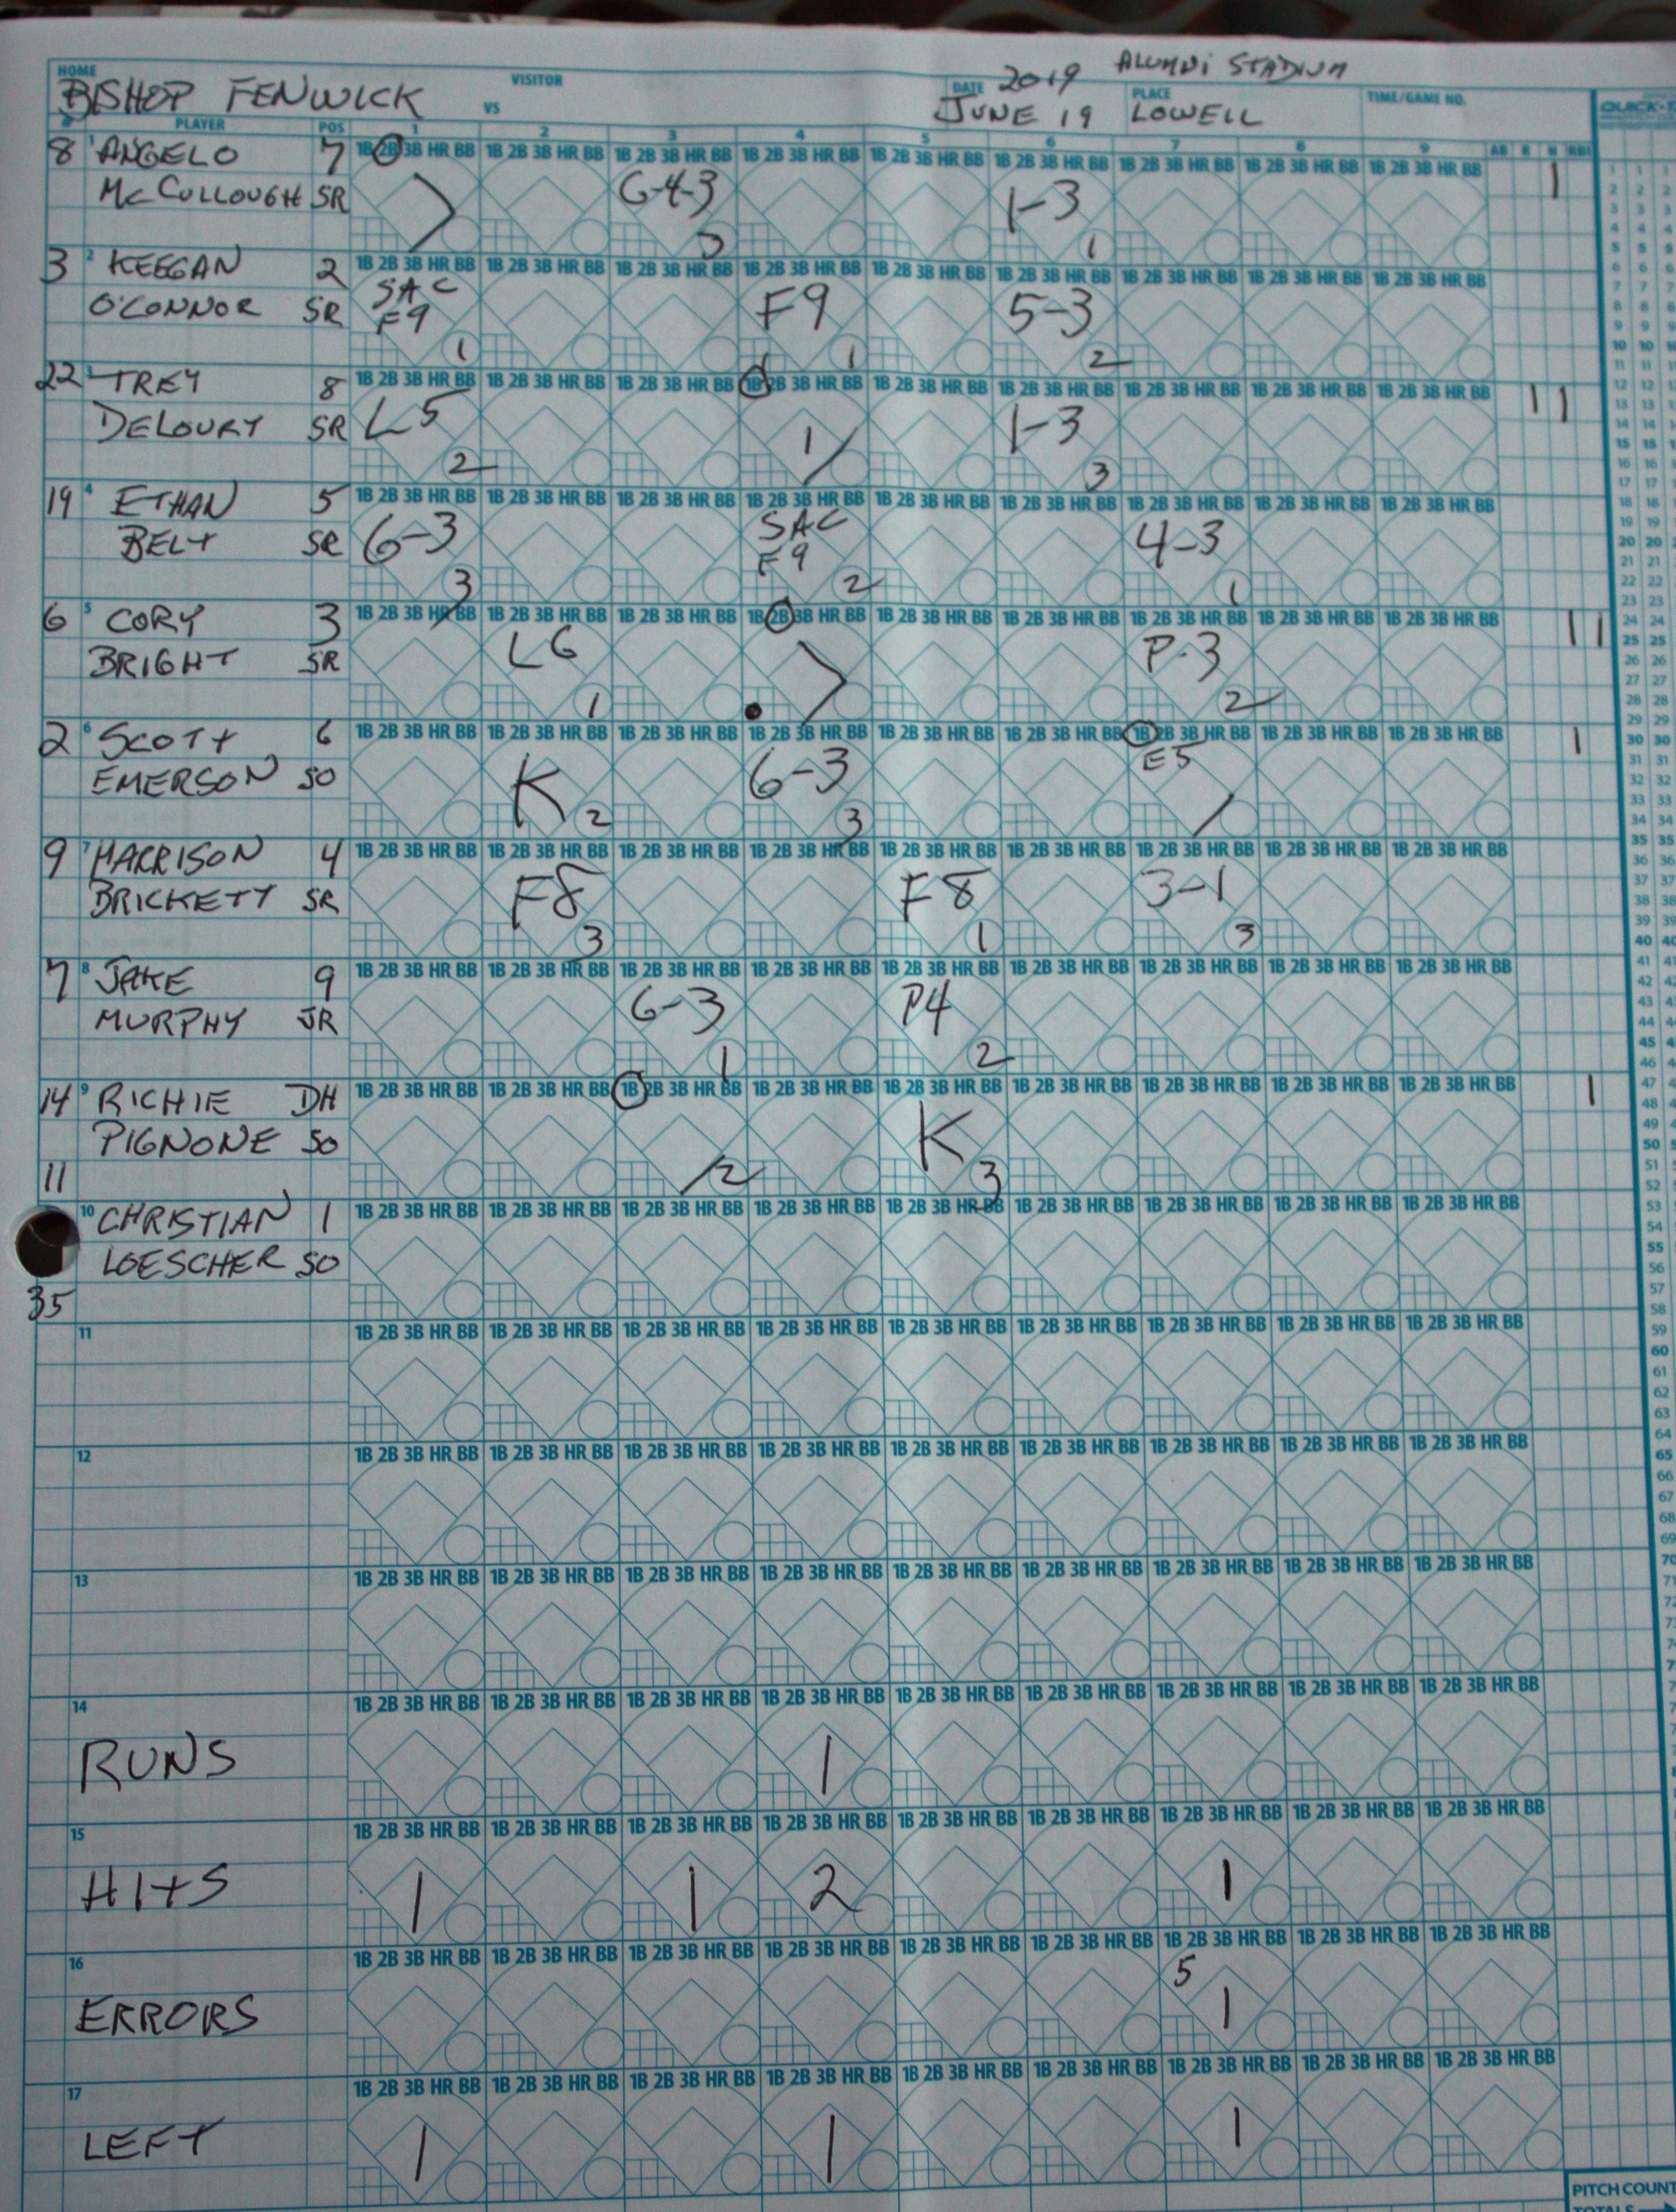 ALUMNI STADIUM
HOME VISITOR DATE 2019 PLACE TIME/GAME NO.
BISHOP FENWICK VS JUNE 19 LOWELL
PLAYER POS 1 2 3 4 5 6 7 8 9 AB R H RBI
8 1 ANGELO 7 1B 2B 3B HR BB 1B 2B 3B HR BB 1B 2B 3B HR BB 1B 2B 3B HR BB 1B 2B 3B HR BB 1B 2B 3B HR BB 1B 2B 3B HR BB 1B 2B 3B HR BB 1B 2B 3B HR BB 1
McCULLOUGH SR 6-4-3 1-3
3 1
3 2 KEEGAN 2 1B 2B 3B HR BB 1B 2B 3B HR BB 1B 2B 3B HR BB 1B 2B 3B HR BB 1B 2B 3B HR BB 1B 2B 3B HR BB 1B 2B 3B HR BB 1B 2B 3B HR BB 1B 2B 3B HR BB
O'CONNOR SR SAC F9 F9 5-3
1 1 2
22 3 TREY 8 1B 2B 3B HR BB 1B 2B 3B HR BB 1B 2B 3B HR BB 1B 2B 3B HR BB 1B 2B 3B HR BB 1B 2B 3B HR BB 1B 2B 3B HR BB 1B 2B 3B HR BB 1B 2B 3B HR BB 1 1
DELOURY SR L5 1 1-3
2 3
19 4 ETHAN 5 1B 2B 3B HR BB 1B 2B 3B HR BB 1B 2B 3B HR BB 1B 2B 3B HR BB 1B 2B 3B HR BB 1B 2B 3B HR BB 1B 2B 3B HR BB 1B 2B 3B HR BB 1B 2B 3B HR BB
BELT SR 6-3 SAC F9 4-3
3 2 1
6 5 CORY 3 1B 2B 3B HR BB 1B 2B 3B HR BB 1B 2B 3B HR BB 1B 2B 3B HR BB 1B 2B 3B HR BB 1B 2B 3B HR BB 1B 2B 3B HR BB 1B 2B 3B HR BB 1B 2B 3B HR BB 1 1
BRIGHT SR L6 P-3
1 2
2 6 SCOTT 6 1B 2B 3B HR BB 1B 2B 3B HR BB 1B 2B 3B HR BB 1B 2B 3B HR BB 1B 2B 3B HR BB 1B 2B 3B HR BB 1B 2B 3B HR BB 1B 2B 3B HR BB 1B 2B 3B HR BB 1
EMERSON SO K 6-3 E5
2 3
9 7 HARRISON 4 1B 2B 3B HR BB 1B 2B 3B HR BB 1B 2B 3B HR BB 1B 2B 3B HR BB 1B 2B 3B HR BB 1B 2B 3B HR BB 1B 2B 3B HR BB 1B 2B 3B HR BB 1B 2B 3B HR BB
BRICKETT SR F8 F8 3-1
3 1 3
7 8 JAKE 9 1B 2B 3B HR BB 1B 2B 3B HR BB 1B 2B 3B HR BB 1B 2B 3B HR BB 1B 2B 3B HR BB 1B 2B 3B HR BB 1B 2B 3B HR BB 1B 2B 3B HR BB 1B 2B 3B HR BB
MURPHY JR 6-3 P4
1 2
14 9 RICHIE DH 1B 2B 3B HR BB 1B 2B 3B HR BB 1B 2B 3B HR BB 1B 2B 3B HR BB 1B 2B 3B HR BB 1B 2B 3B HR BB 1B 2B 3B HR BB 1B 2B 3B HR BB 1B 2B 3B HR BB 1
PIGNONE SO K
11 2 3
10 CHRISTIAN 1 1B 2B 3B HR BB 1B 2B 3B HR BB 1B 2B 3B HR BB 1B 2B 3B HR BB 1B 2B 3B HR BB 1B 2B 3B HR BB 1B 2B 3B HR BB 1B 2B 3B HR BB 1B 2B 3B HR BB
LOESCHER SO
35
11 1B 2B 3B HR BB 1B 2B 3B HR BB 1B 2B 3B HR BB 1B 2B 3B HR BB 1B 2B 3B HR BB 1B 2B 3B HR BB 1B 2B 3B HR BB 1B 2B 3B HR BB 1B 2B 3B HR BB
12 1B 2B 3B HR BB 1B 2B 3B HR BB 1B 2B 3B HR BB 1B 2B 3B HR BB 1B 2B 3B HR BB 1B 2B 3B HR BB 1B 2B 3B HR BB 1B 2B 3B HR BB 1B 2B 3B HR BB
13 1B 2B 3B HR BB 1B 2B 3B HR BB 1B 2B 3B HR BB 1B 2B 3B HR BB 1B 2B 3B HR BB 1B 2B 3B HR BB 1B 2B 3B HR BB 1B 2B 3B HR BB 1B 2B 3B HR BB
14 1B 2B 3B HR BB 1B 2B 3B HR BB 1B 2B 3B HR BB 1B 2B 3B HR BB 1B 2B 3B HR BB 1B 2B 3B HR BB 1B 2B 3B HR BB 1B 2B 3B HR BB 1B 2B 3B HR BB
RUNS 1
15 1B 2B 3B HR BB 1B 2B 3B HR BB 1B 2B 3B HR BB 1B 2B 3B HR BB 1B 2B 3B HR BB 1B 2B 3B HR BB 1B 2B 3B HR BB 1B 2B 3B HR BB 1B 2B 3B HR BB
HITS 1 1 2 1
16 1B 2B 3B HR BB 1B 2B 3B HR BB 1B 2B 3B HR BB 1B 2B 3B HR BB 1B 2B 3B HR BB 1B 2B 3B HR BB 1B 2B 3B HR BB 1B 2B 3B HR BB 1B 2B 3B HR BB
5
ERRORS 1
17 1B 2B 3B HR BB 1B 2B 3B HR BB 1B 2B 3B HR BB 1B 2B 3B HR BB 1B 2B 3B HR BB 1B 2B 3B HR BB 1B 2B 3B HR BB 1B 2B 3B HR BB 1B 2B 3B HR BB
LEFT 1 1 1
PITCH COUNT